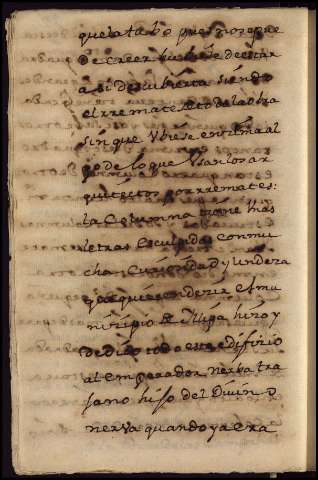 que la tabo pues no se que
de creer hubiese de estar
asi descubierta siendo
el rremate alto de la obra
sin que ubiese enzima al
go de lo que usan los ar
quitectos por rremates:
la Columna tiene has
letras esculpidas con mu
cha Curiosidad y undeza
que quieren dezir el mu
nizipio de Illipa hizo y
dedico todo este edifizio
al emperador nerba tra
jano hijo del Divin o
nerva quando ya era